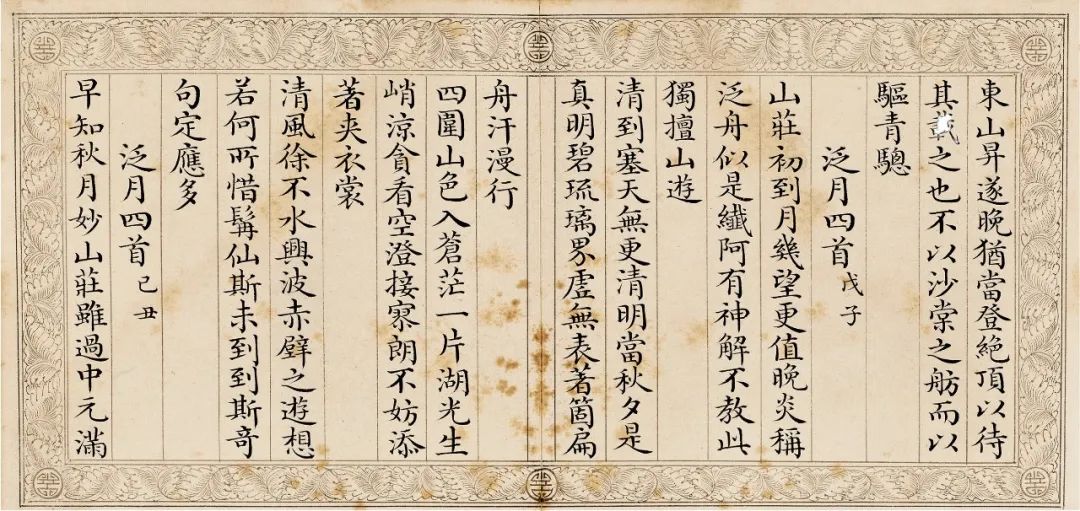 東山昇遂晚猶當登絕頂以待
其載之也不以沙棠之舫而以
驅青驄
泛月四首 戊子
山莊初到月幾望更值晚炎稱
泛舟似是纖阿有神解不教此
獨擅山遊
清到塞天無更清明當秋夕是
真明碧琉璃界虛無表著箇扁
舟汗漫行
四圍山色入蒼茫一片湖光生
峭涼貪看空澄接寥朗不妨添
著夾衣裳
清風徐不水興波赤壁之遊想
若何所惜髯仙斯未到到斯奇
句定應多
泛月四首 己丑
早知秋月妙山莊雖過中元滿